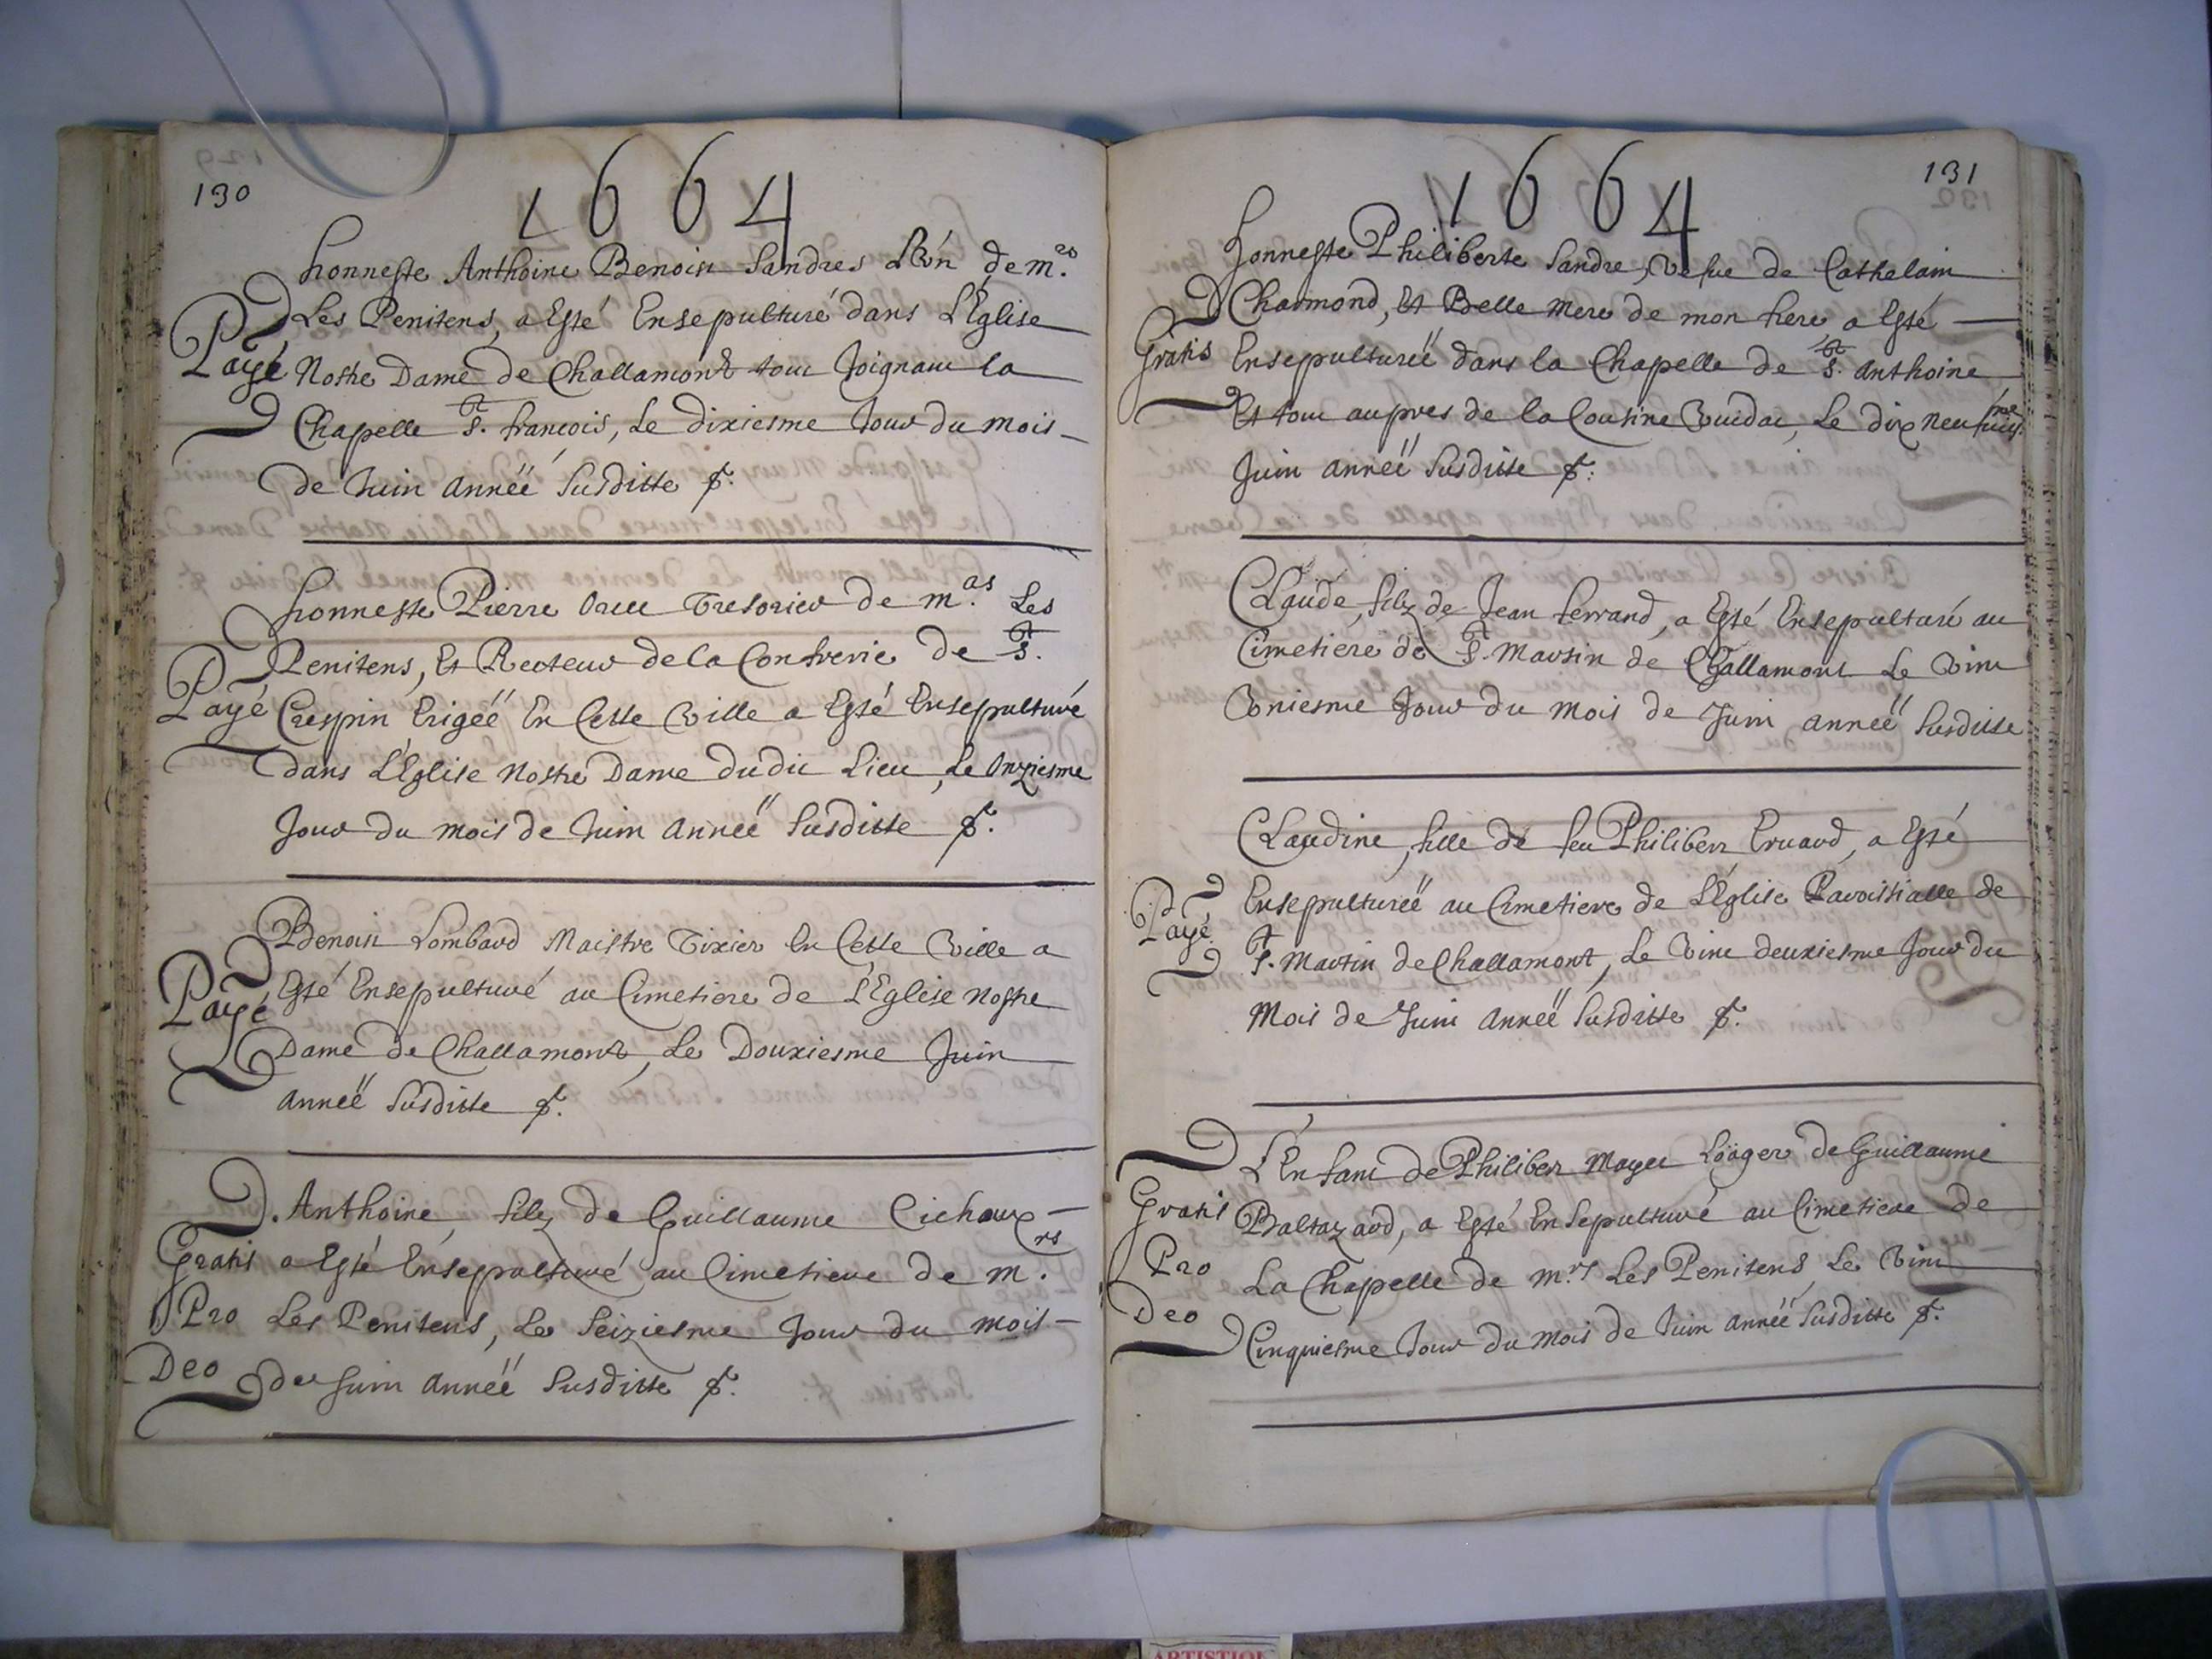 130
1664
honneste Anthoine Benoist Sandres de m.rs
Les Penitens, a Esté Ensepulturé dans L'Eglise
Payé
Nostre Dame de Challamont tout Joignant la
Chapelle St. francois, Le dixiesme Jour du mois
de Juin Annéé susditte
honneste Pierre Tresorier de m.rs Les
Penitens, Et Recteur de la Confrerie de St.
Payé
Crespin Erigéé En Cette Ville a Esté Ensepulturé
dans L'Eglise Nostre Dame dudit Lieu, Le Onziesme
Jour du mois de Juin Annéé susditte
Benoist Lombard Maistre Tixier En Cette Ville a
Payé
Esté Ensepulturé au Cimetiere de L'Eglise Nostre
Dame de Challamont, Le Douxiesme Juin
Annéé susditte
Anthoine, filz de Guillaume Cichoux
Gratis
a Esté Ensepulturé au Cimetiere de m.rs
Pro
Les Penitens, Le Seiziesme Jour du mois
Deo
de Juin Annéé susditte
131
1664
Honneste Philiberte Sandre, Vefue de Cathelain
Charmond, Et Belle mere de mon frere a Esté
Gratis
Ensepulturéé dans la Chapelle de St. Anthoine
Et tout aupres de la Cousine Le dix neufuiesme
Juin annéé susditte
CLaude, filz de Jean ferrand, a Esté Ensepulturé au
Cimetiere de St. Martin de Challamont Le Vint
Vniesme Jour du mois de Juin annéé susditte
CLaudine, fille de feu Philibert Eruard, a Esté
Payé
Ensepulturéé au Cimetiere de L'Eglise Paroissialle de
St. Martin de Challamont, Le Vint deuxiesme Jour du
Mois de Juin Annéé susditte
L'Enfant de Philibert Mayet Löager de Guillaume
Gratis
Baltazard, a Esté Ensepulturé au Cimetiere de
Pro
La Chapelle de m.rs Les Penitens, Le Vint
Deo
Cinquiesme Jour du mois de Juin annéé susditte
ARTISTIQUE